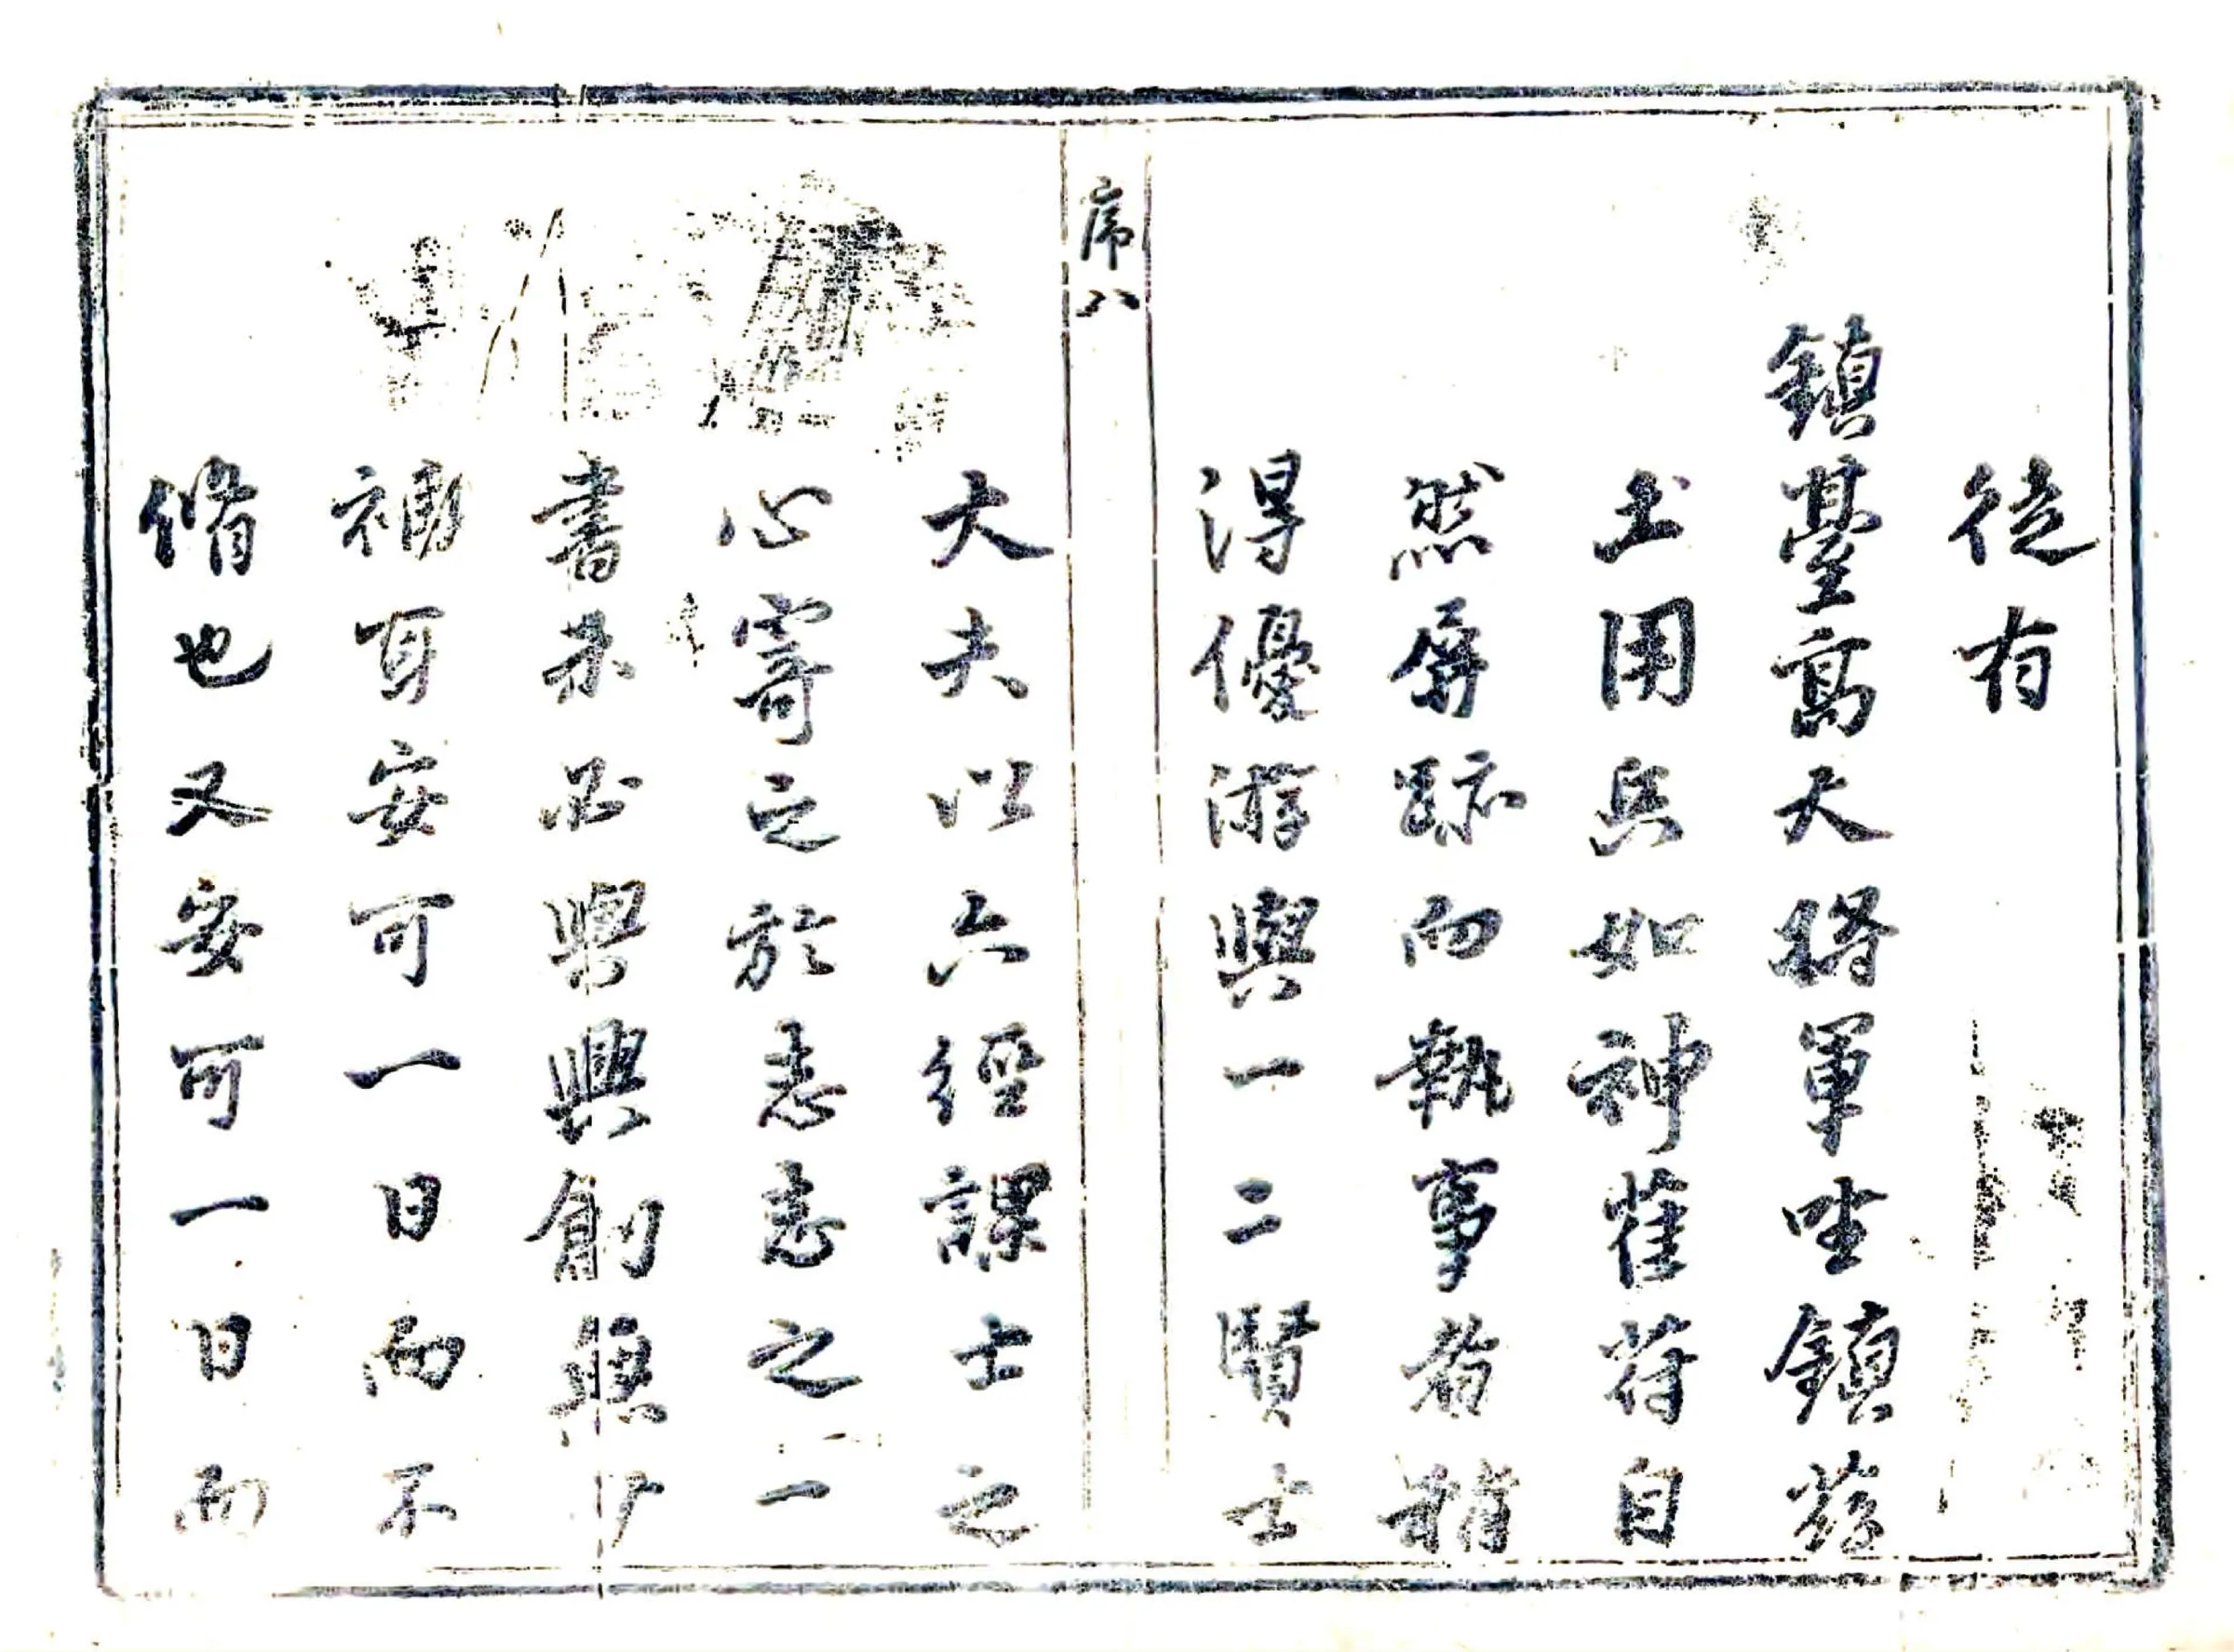 徒有
鎮臺高大將軍坐鎮茲
土用兵如神萑苻自
然屏跡而執事者稍
得優游與一二賢士
序八
大夫以六經課士之
心寄之於志志之一
書未必與興創無少
補耳安可一日而不
脩也又安可一日而